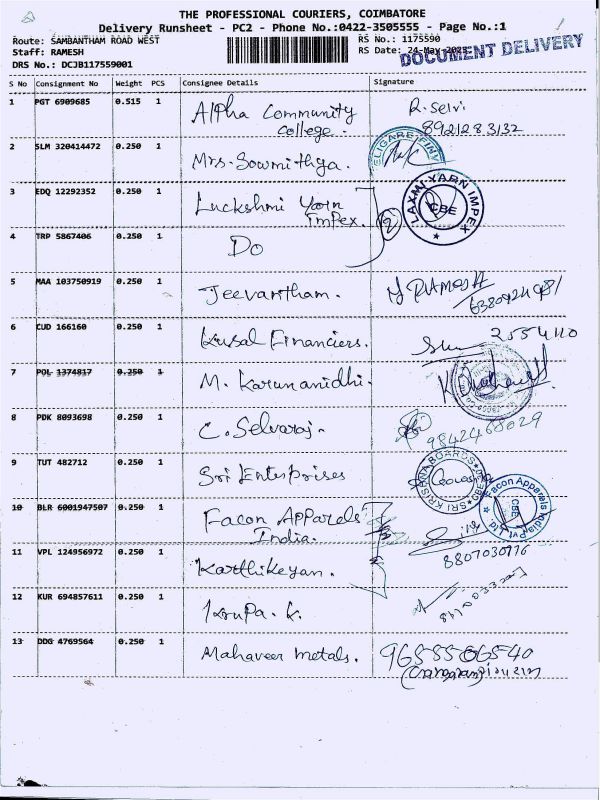 THE PROFESSIONAL COURIERS, COIMBATORE
Delivery Runsheet - PC2 - Phone No.:0422-3505555 - Page No.:1
Route: SAMBANTHAM ROAD WEST
Staff: RAMESH
DRS No.: DCJB117559001
RS No.: 1175590
RS Date: 24-May-2023
DOCUMENT DELIVERY
S No Consignment No Weight PCS Consignee Details Signature
1 PGT 6909685 0.515 1 Alpha Community College. R. Selvi 8921283132
2 SLM 320414472 0.250 1 Mrs. Sowmithya. RELIGARE FINV
3 EDQ 12292352 0.250 1 Luckshmi Yarn Impex. 2 LAXMI YARN IMPEX CBE
4 TRP 5867406 0.250 1 Do
5 MAA 103750919 0.250 1 Jeevantham. RAMESH
6 CUD 166160 0.250 1 Kusal Financiers. 2554110
7 POL 1374817 0.250 1 M. Karunanidhi.
8 PDK 8093698 0.250 1 C. Selvaraj. 9842468029
9 TUT 482712 0.250 1 Sri Enterprises SRI KRISHNA BOARDS CBE
10 BLR 6001947507 0.250 1 Facon Apparels India. Facon Apparels India Pvt Ltd. CBE
11 VPL 124956972 0.250 1 Karthikeyan. 8807030776
12 KUR 694857611 0.250 1 Krupa. K.
13 DDG 4769564 0.250 1 Mahaveer Metals. 9658506540